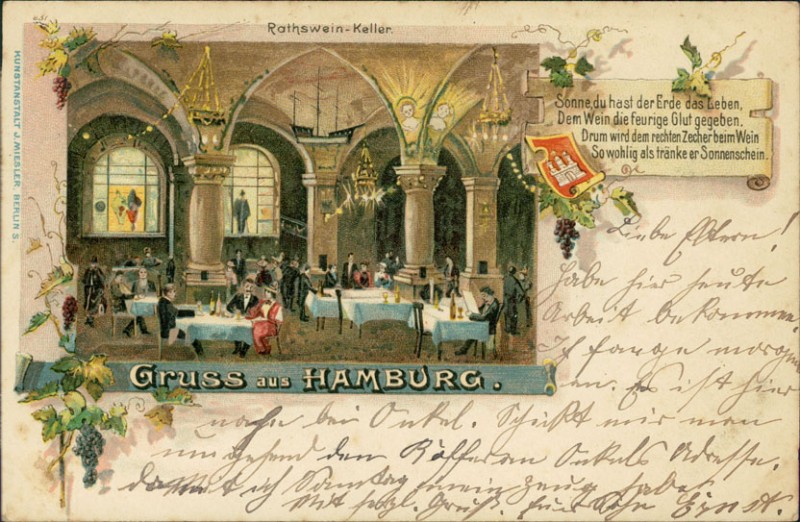 Rathswein-Keller.
KUNSTANSTALT J. MIESLER, BERLIN S.
Sonne, du hast der Erde das Leben,
Dem Wein die feurige Glut gegeben.
Drum wird dem rechten Zecher beim Wein
So wohlig als tränke er Sonnenschein.
Gruss aus HAMBURG.
Liebe Eltern!
habe hier heute
Arbeit bekommen.
Ich fange morgen
an. Es ist hier
nahe bei Onkel. Schickt mir man
umgehend den Koffer an Onkels Adresse.
damit ich Sonntag mein Zeug habe.
Mit herzl. Gruß. Euer Sohn Ernst.